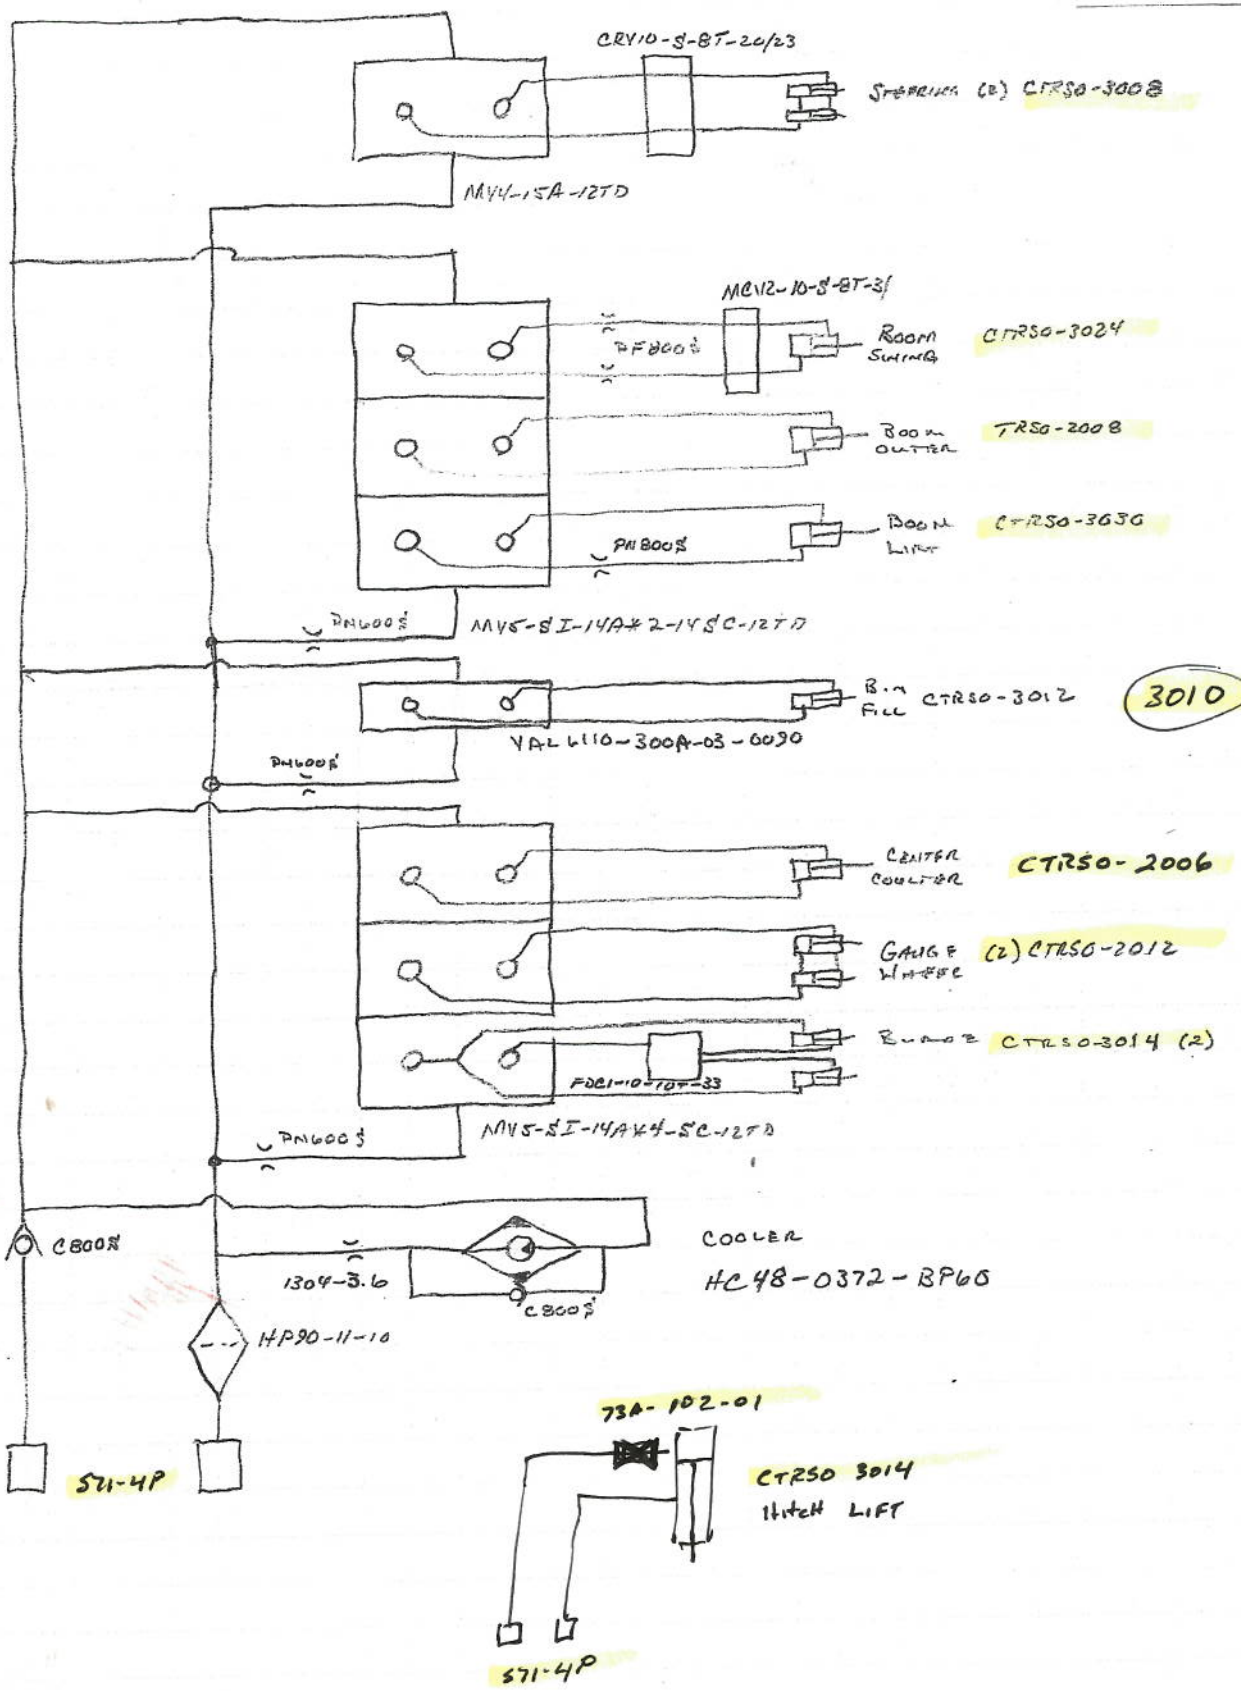 CRV10-S-8T-20/23
STEERING (2) CTRSO-3008
MV4-15A-12TD
MCV12-10-S-8T-31
PF800S
BOOM
SWING
CTRSO-3024
BOOM
OUTTER
TRSO-2008
BOOM
LIFT
CTRSO-3030
PN800S
PN600S
MV5-SI-14A*2-14SC-12TD
BIN
FILL CTRSO-3012
3010
VAL 6110-300A-03-0090
PN600S
CENTER
COULTER
CTRSO-2006
GAUGE
WHEEL
(2) CTRSO-2012
CTRSO-3014 (2)
FDC1-10-10T-33
MV5-SI-14A*4-SC-12TD
PN600S
C800S
COOLER
1304-3.6
HC48-0372-BP60
C800S
HP90-11-10
73A-102-01
S71-4P
CTRSO 3014
HitcH LIFT
S71-4P